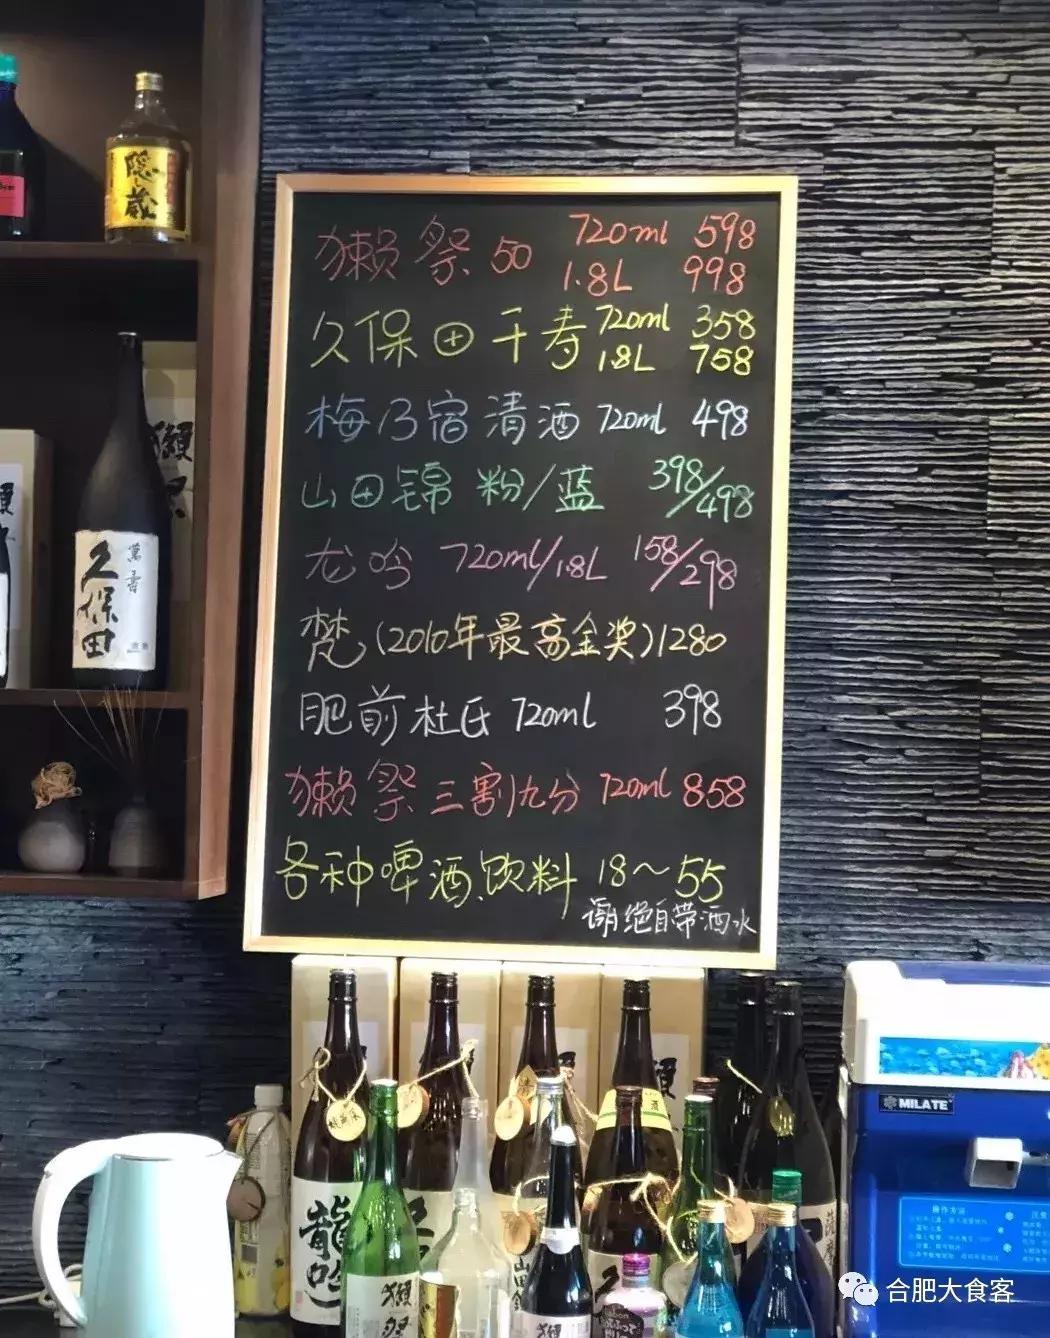 獭祭 50 720ml 598
1.8L 998
久保田千寿 720ml 358
1.8L 758
梅乃宿清酒 720ml 498
山田锦 粉/蓝 398/498
龙吟 720ml/1.8L 158/298
梵(2010年最高金奖)1280
肥前杜氏 720ml 398
獭祭三割九分 720ml 858
各种啤酒.饮料 18～55
谢绝自带酒水
隠し蔵
萬寿
久保田
獺祭
龍吟
獺祭
山田錦
MILATE
操作方法
合肥大食客